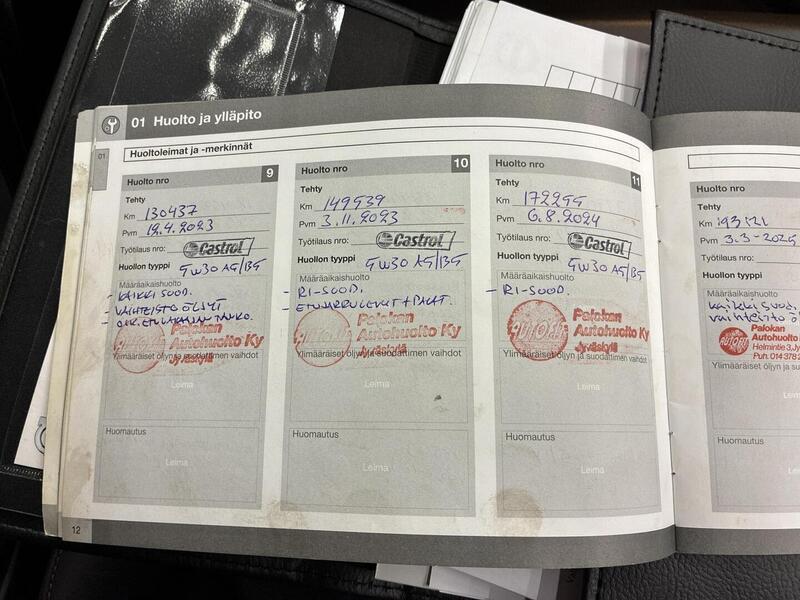 01 Huolto ja ylläpito
01
Huoltoleimat ja -merkinnät
Huolto nro 9
Tehty
Km 130437
Pvm 19.4.2023
Työtilaus nro: Castrol
Huollon tyyppi 5W30 A5/B5
Määräaikaishuolto
- KAIKKI SUOD.
- VAIHTEISTO ÖLJYT
- OIK. ETU. TANKO.
Palokan
Autohuolto Ky
Jyväskylä
Ylimääräiset öljyn ja suodattimen vaihdot
Leima
Huomautus
Leima
12
Huolto nro 10
Tehty
Km 149539
Pvm 3.11.2023
Työtilaus nro: Castrol
Huollon tyyppi 5W30 A5/B5
Määräaikaishuolto
- RI-SUOD.
- ETUJARRULEVYT + PALAT.
Palokan
Autohuolto Ky
Jyväskylä
Ylimääräiset öljyn ja suodattimen vaihdot
Leima
Huomautus
Leima
Huolto nro 11
Tehty
Km 172255
Pvm 6.8.2024
Työtilaus nro: Castrol
Huollon tyyppi 5W30 A5/B5
Määräaikaishuolto
- RI-SUOD.
Palokan
Autohuolto Ky
Jyväskylä
Ylimääräiset öljyn ja suodattimen vaihdot
Leima
Huomautus
Leima
Huolto nro
Tehty
Km 193121
Pvm 3.3-2025
Työtilaus nro:
Huollon tyyppi
Määräaikaishuolto
kaikki suod.
vaihteisto
Palokan
Autohuolto
Helmintie 3, Jy
Puh. 014 378 2
Ylimääräiset öljyn ja su
Huomautus